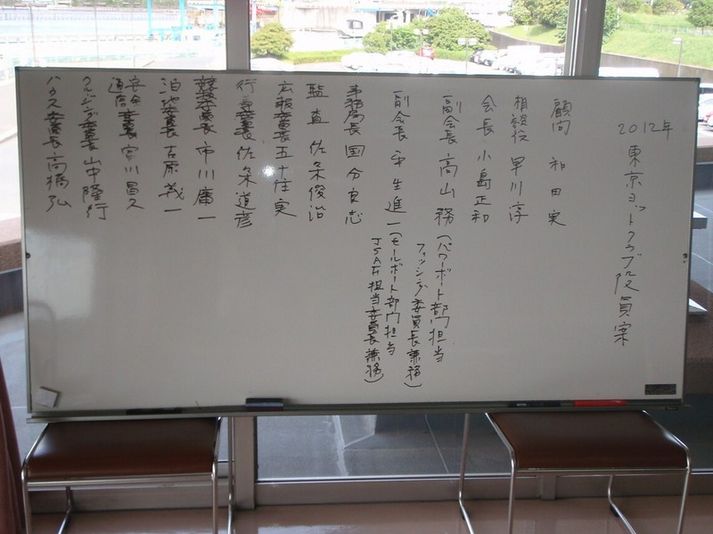 2012年
東京ヨットクラブ役員案
顧問 和田 実
相談役 早川 淳
会長 小島正和
副会長 高山 務 (パワーボート部門担当
フィッシング委員長兼務)
副会長 生進一 (セールボート部門担当
JSAF担当委員長兼務)
事務局長 国分良志
監査 佐々木俊治
広報委員長 五十住実
行事委員長 佐々木道彦
競技委員長 市川庸一
泊地委員長 吉原義一
安全 委員長 宮川昌久
クルージング委員長 山中隆行
ハウス委員長 高橋弘